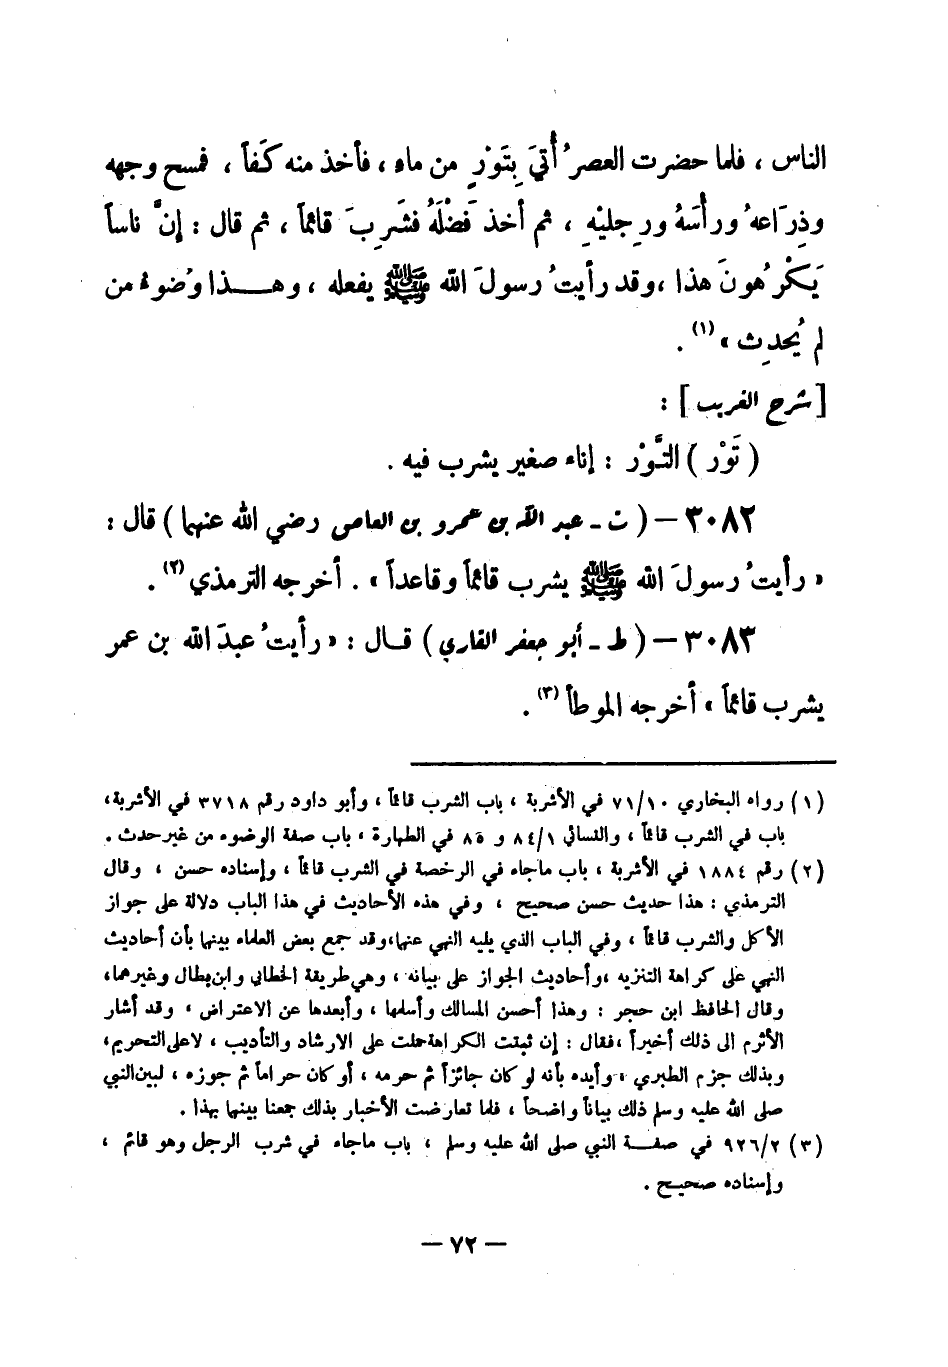 الناس ، فلما حضرت العصرُ أُتيَ بِتَوْرٍ من ماء ، فأخذ منه كَفاً ، فمسح وجهه
وذِرَاعهُ ورأسَهُ ورِجليْهِ ، ثم أخذ فَضْلَهُ فشَرِبَ قائماً ، ثم قال : إنَّ ناساً
يَكْرُهُونَ هذا ، وقد رأيتُ رسولَ الله ﷺ يفعله ، وهـذا وُضوءُ من
لم يُحدِث » (١) .
[ شرح الغريب ] :
( تَوْر ) التَّوْر : إناء صغير يشرب فيه .
٣٠٨٢ – ( ت ـ عبد الله بن عمرو بن العاص رضي الله عنهما ) قال :
« رأيتُ رسولَ الله ﷺ يشرب قائماً وقاعداً » . أخرجه الترمذي (٢) .
٣٠٨٣ – ( ط ـ أبو جعفر القاري ) قـال : « رأيتُ عبدَ الله بن عمر
يشرب قائماً » أخرجه الموطأ (٣) .
(١) رواه البخاري ٧١/١٠ في الأشربة ، باب الشرب قائماً ، وأبو داود رقم ٣٧١٨ في الأشربة،
باب في الشرب قائماً ، والنسائي ٨٤/١ و ٨٥ في الطهارة ، باب صفة الوضوء من غير حدث .
(٢) رقم ١٨٨٤ في الأشربة ، باب ماجاء في الرخصة في الشرب قائماً ، وإسناده حسن ، وقال
الترمذي : هذا حديث حسن صحيح ، وفي هذه الأحاديث في هذا الباب دلالة على جواز
الأكل والشرب قائماً ، وفي الباب الذي يليه النهي عنها،وقد جمع بعض العلماء بينها بأن أحاديث
النهي على كراهة التنزيه ،وأحاديث الجواز على بيانه ، وهي طريقة الخطابي وابن بطال وغيرهما،
وقال الحافظ ابن حجر : وهذا أحسن المسالك وأسلمها ، وأبعدها عن الاعتراض ، وقد أشار
الأثرم الى ذلك أخيراً ،فقال : إن ثبتت الكراهة حملت على الارشاد والتأديب ، لاعلى التحريم،
وبذلك جزم الطبري ، وأيده بأنه لو كان جائزاً ثم حرمه ، أو كان حراماً ثم جوزه ، لبين النبي
صلى الله عليه وسلم ذلك بياناً واضحاً ، فلما تعارضت الأخبار بذلك جمعنا بينها بهذا .
(٣) ٩٢٦/٢ في صفـة النبي صلى الله عليه وسلم ، باب ماجاء في شرب الرجل وهو قائم ،
وإسناده صحيح .
– ٧٢ –